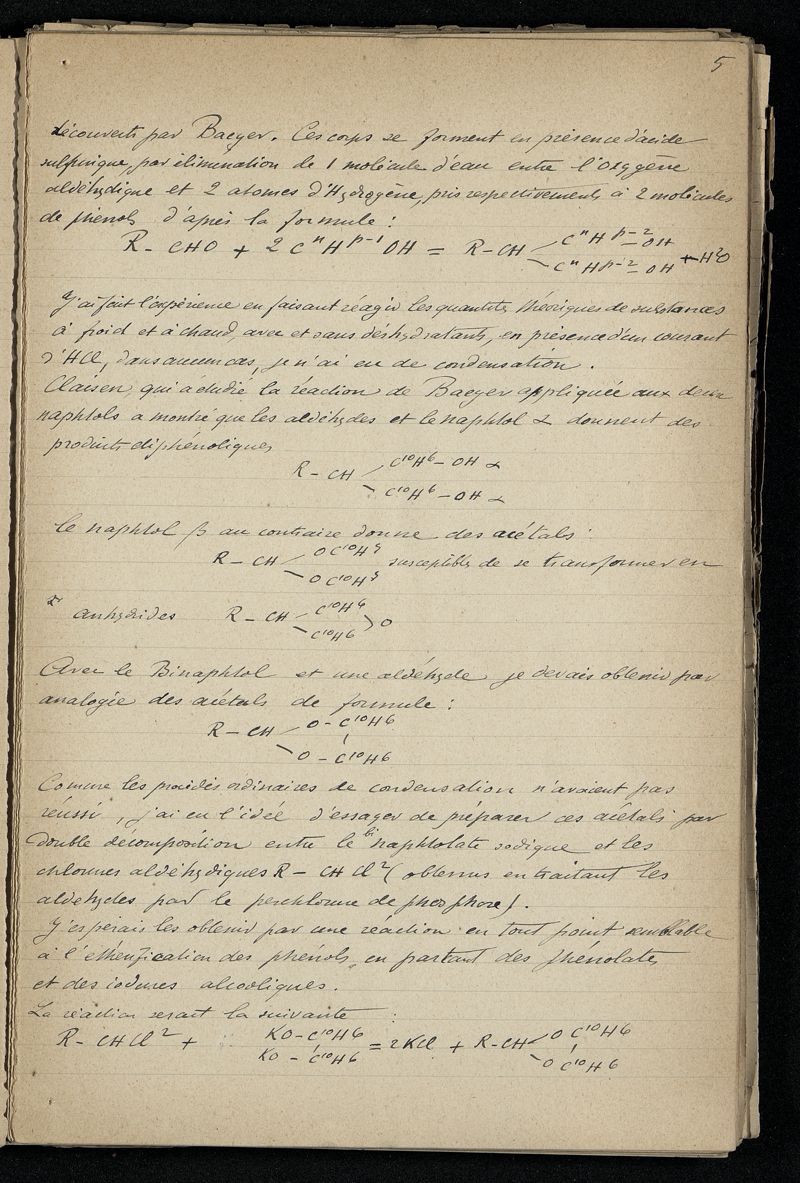 5
découverts par Baeyer. Ces corps se forment en présence d'acide
sulfurique, par élimination de 1 molécule d'eau entre l'oxygène
aldéhydique et 2 atomes d'Hydrogène, pris respectivement à 2 molécules
de phénols d'après la formule :
R – CHO + 2 CⁿHᵖ⁻¹OH = R – CH < CⁿHᵖ⁻² – OH
CⁿHᵖ⁻² – OH + H²O
J'ai fait l'expérience en faisant réagir les quantités théoriques de substances
à froid et à chaud, avec et sans déshydratants, en présence d'un courant
d'HCl, dans aucun cas, je n'ai eu de condensation.
Claisen, qui a étudié la réaction de Baeyer appliquée aux deux
naphtols a montré que les aldéhydes et le naphtol α donnent des
produits diphénoliques
R – CH < C¹⁰H⁶ – OH α
C¹⁰H⁶ – OH α
le naphtol β au contraire donne des acétals :
R – CH < OC¹⁰H⁷ susceptibles de se transformer en
OC¹⁰H⁷
anhydrides R – CH < C¹⁰H⁶ > O
C¹⁰H⁶
Avec le Binaphtol et une aldéhyde je devais obtenir par
analogie des acétals de formule :
R – CH < O – C¹⁰H⁶
O – C¹⁰H⁶
Comme les procédés ordinaires de condensation n'avaient pas
réussi, j'ai eu l'idée d'essayer de préparer ces acétals par
double décomposition entre le binaphtolate sodique et les
chlorures aldéhydiques R – CHCl² (obtenus en traitant les
aldéhydes par le perchlorure de phosphore).
J'espérais les obtenir par une réaction en tout point semblable
à l'éthérification des phénols en partant des phénolates
et des iodures alcooliques.
La réaction serait la suivante :
R – CHCl² + KO – C¹⁰H⁶ = 2KCl + R – CH < OC¹⁰H⁶
KO – C¹⁰H⁶ OC¹⁰H⁶